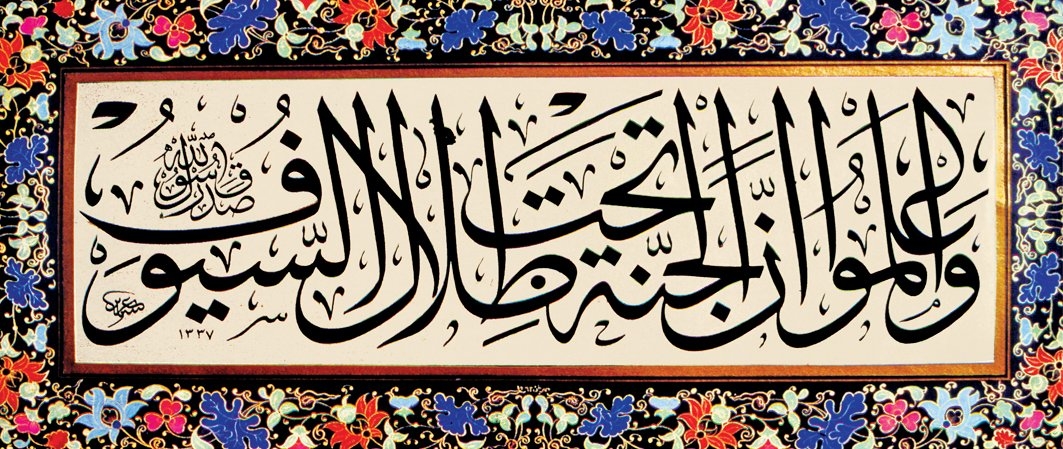 واعلموا أن الجنة تحت ظلال السيوف
صدق رسول الله
١٣٣٧